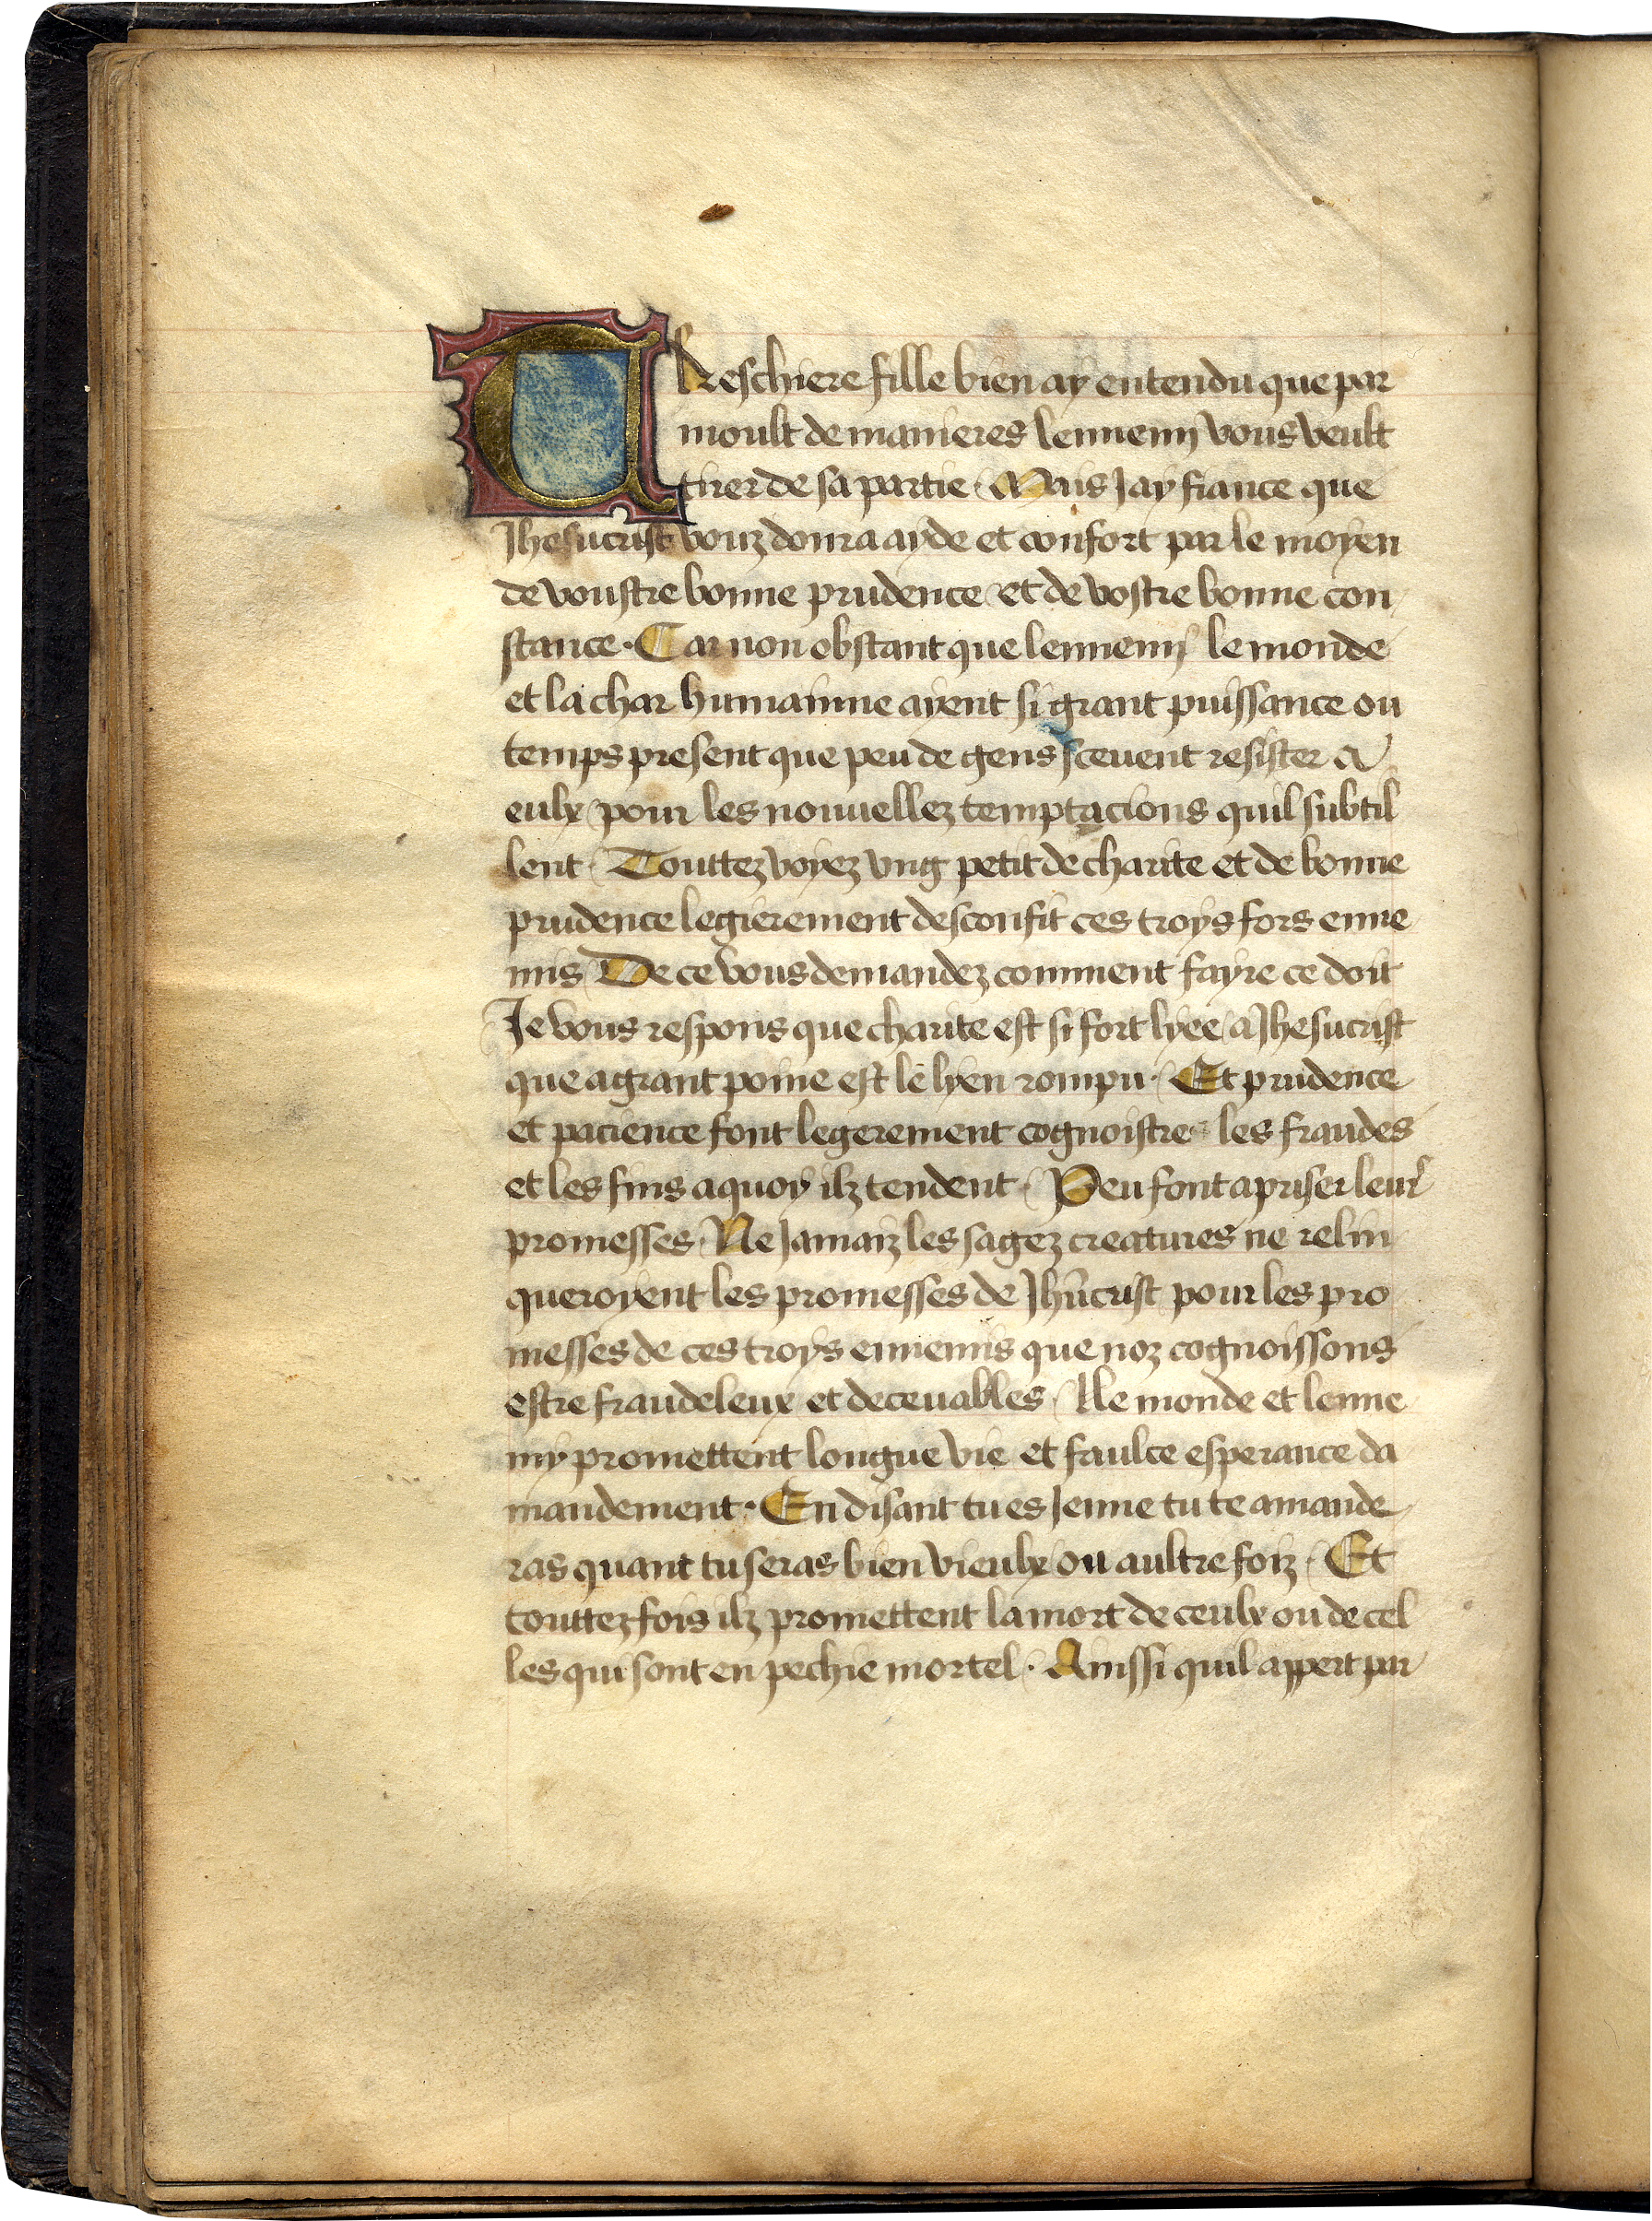 TReschiere fille bien ay entendu que par
moult de manieres lennemy vous veult
tirer de sa partie. Mais Jay fiance que
Jhesucrist vouz donra ayde et confort par le moyen
de voustre bonne prudence et de vostre bonne con
stance. Car non obstant que lennemy le monde
et la char humainne ayent si grant puissance ou
temps present que peu de gens scevent resister a
eulx pour les nouvellez temptacions quil subtil
lent. Touttez voyez ung petit de charite et de bonne
prudence legierement desconfit ces troys fors enne
mis. De ce vous demandez comment fayre ce doit
Je vous respons que charite est si fort lyee a Jhesucrist
que a grant poine est le lyen rompu. Et prudence
et pacience font legerement cognoistre les fraudes
et les fins a quoy ilz tendent. Peu font a priser leur
promesses. Ne Jamaiz les sagez creatures ne relin
queroyent les promesses de Jhucrist pour les pro
messes de ces troys ennemis que noz cognoissons
estre fraudeleux et decevables. Le monde et lenne
my promettent longue vie et faulce esperance da
mandement. En disant tu es Jenne tu te amande
ras quant tu seras bien vieulx ou aultre foiz. Et
touttez fois ilz promettent la mort de ceulx ou de cel
les qui sont en pechie mortel. Ainssi quil appert par